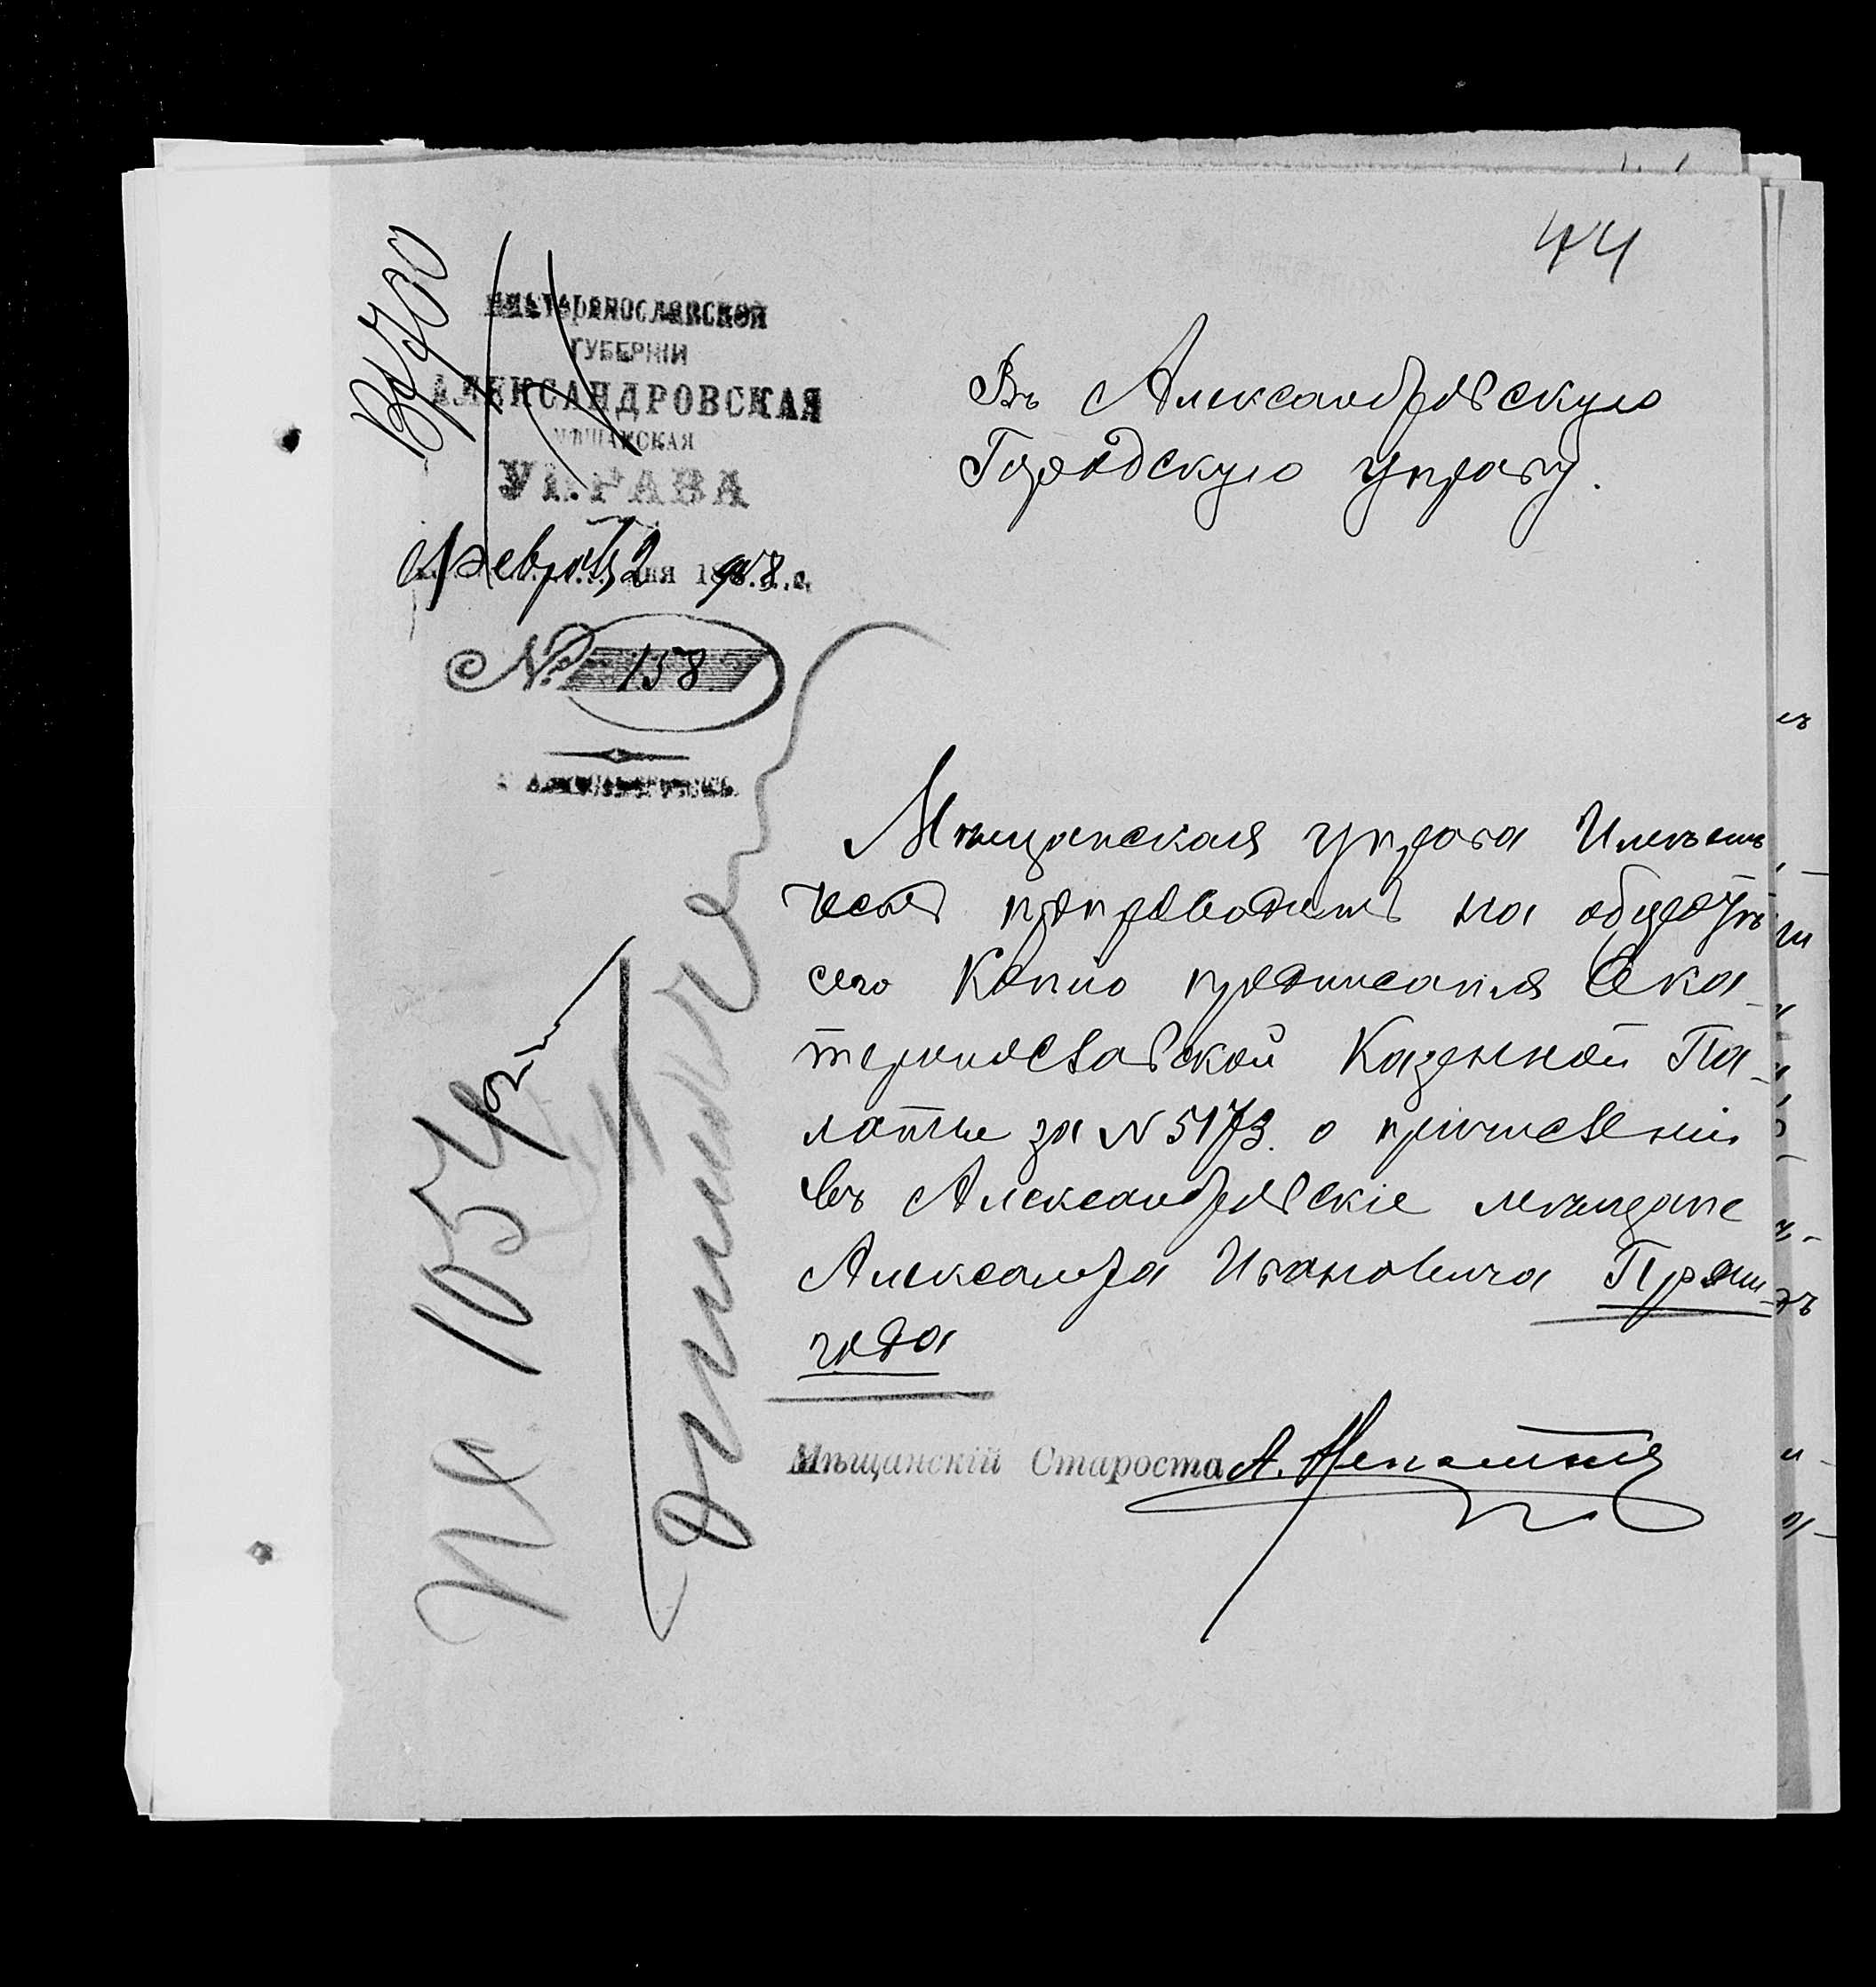 44
ЕКАТЕРИНОСЛАВСКОЙ
ГУБЕРНІИ
АЛЕКСАНДРОВСКАЯ
МѢЩАНСКАЯ
УПРАВА
Февраля 12 дня 1908 г.
№ 158
Г. Александровскъ.
Въ Александровскую
Городскую управу.
Мѣщанская управа Имѣетъ
честь препроводить на оборотѣ
сего Копію предписанія Ека-
теринославской Казенной Па-
латы за № 5173. о причисленіи
въ Александровскіе мѣщане
Александра Ивановича
Мѣщанскій Староста А.
№ 1054